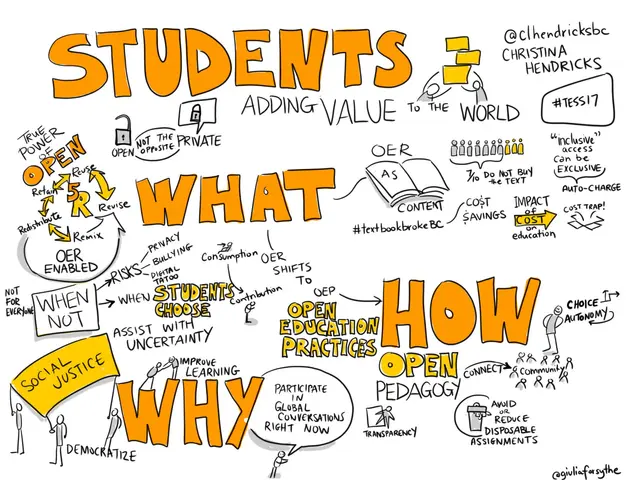 STUDENTS
ADDING VALUE TO THE WORLD
@clhendricksbc
CHRISTINA
HENDRICKS
#TESS17
TRUE
POWER
OF
OPEN
OPEN
NOT THE
OPPOSITE
PRIVATE
Reuse
Retain
5
R
Revise
Redistribute
Remix
OER
ENABLED
WHAT
OER
AS
CONTENT
#textbookbrokeBC
7/10 DO NOT BUY
THE TEXT
CO$T
$AVINGS
IMPACT
of
COST
on
education
"inclusive"
access
can be
EXCLUSIVE
AUTO-CHARGE
COST TRAP!
NOT
FOR
EVERYONE
WHEN
NOT
RISKS
PRIVACY
BULLYING
DIGITAL
TATOO
WHEN STUDENTS
CHOOSE
ASSIST WITH
UNCERTAINTY
Consumption
Contribution
OER
SHIFTS
TO
OEP
OPEN
EDUCATION
PRACTICES
HOW
CHOICE
AUTONOMY
OPEN
PEDAGOGY
CONNECT
Community
TRANSPARENCY
AVOID
OR
REDUCE
DISPOSABLE
ASSIGNMENTS
SOCIAL
JUSTICE
DEMOCRATIZE
WHY
IMPROVE
LEARNING
PARTICIPATE
IN
GLOBAL
CONVERSATIONS
RIGHT NOW
@giuliaforsythe